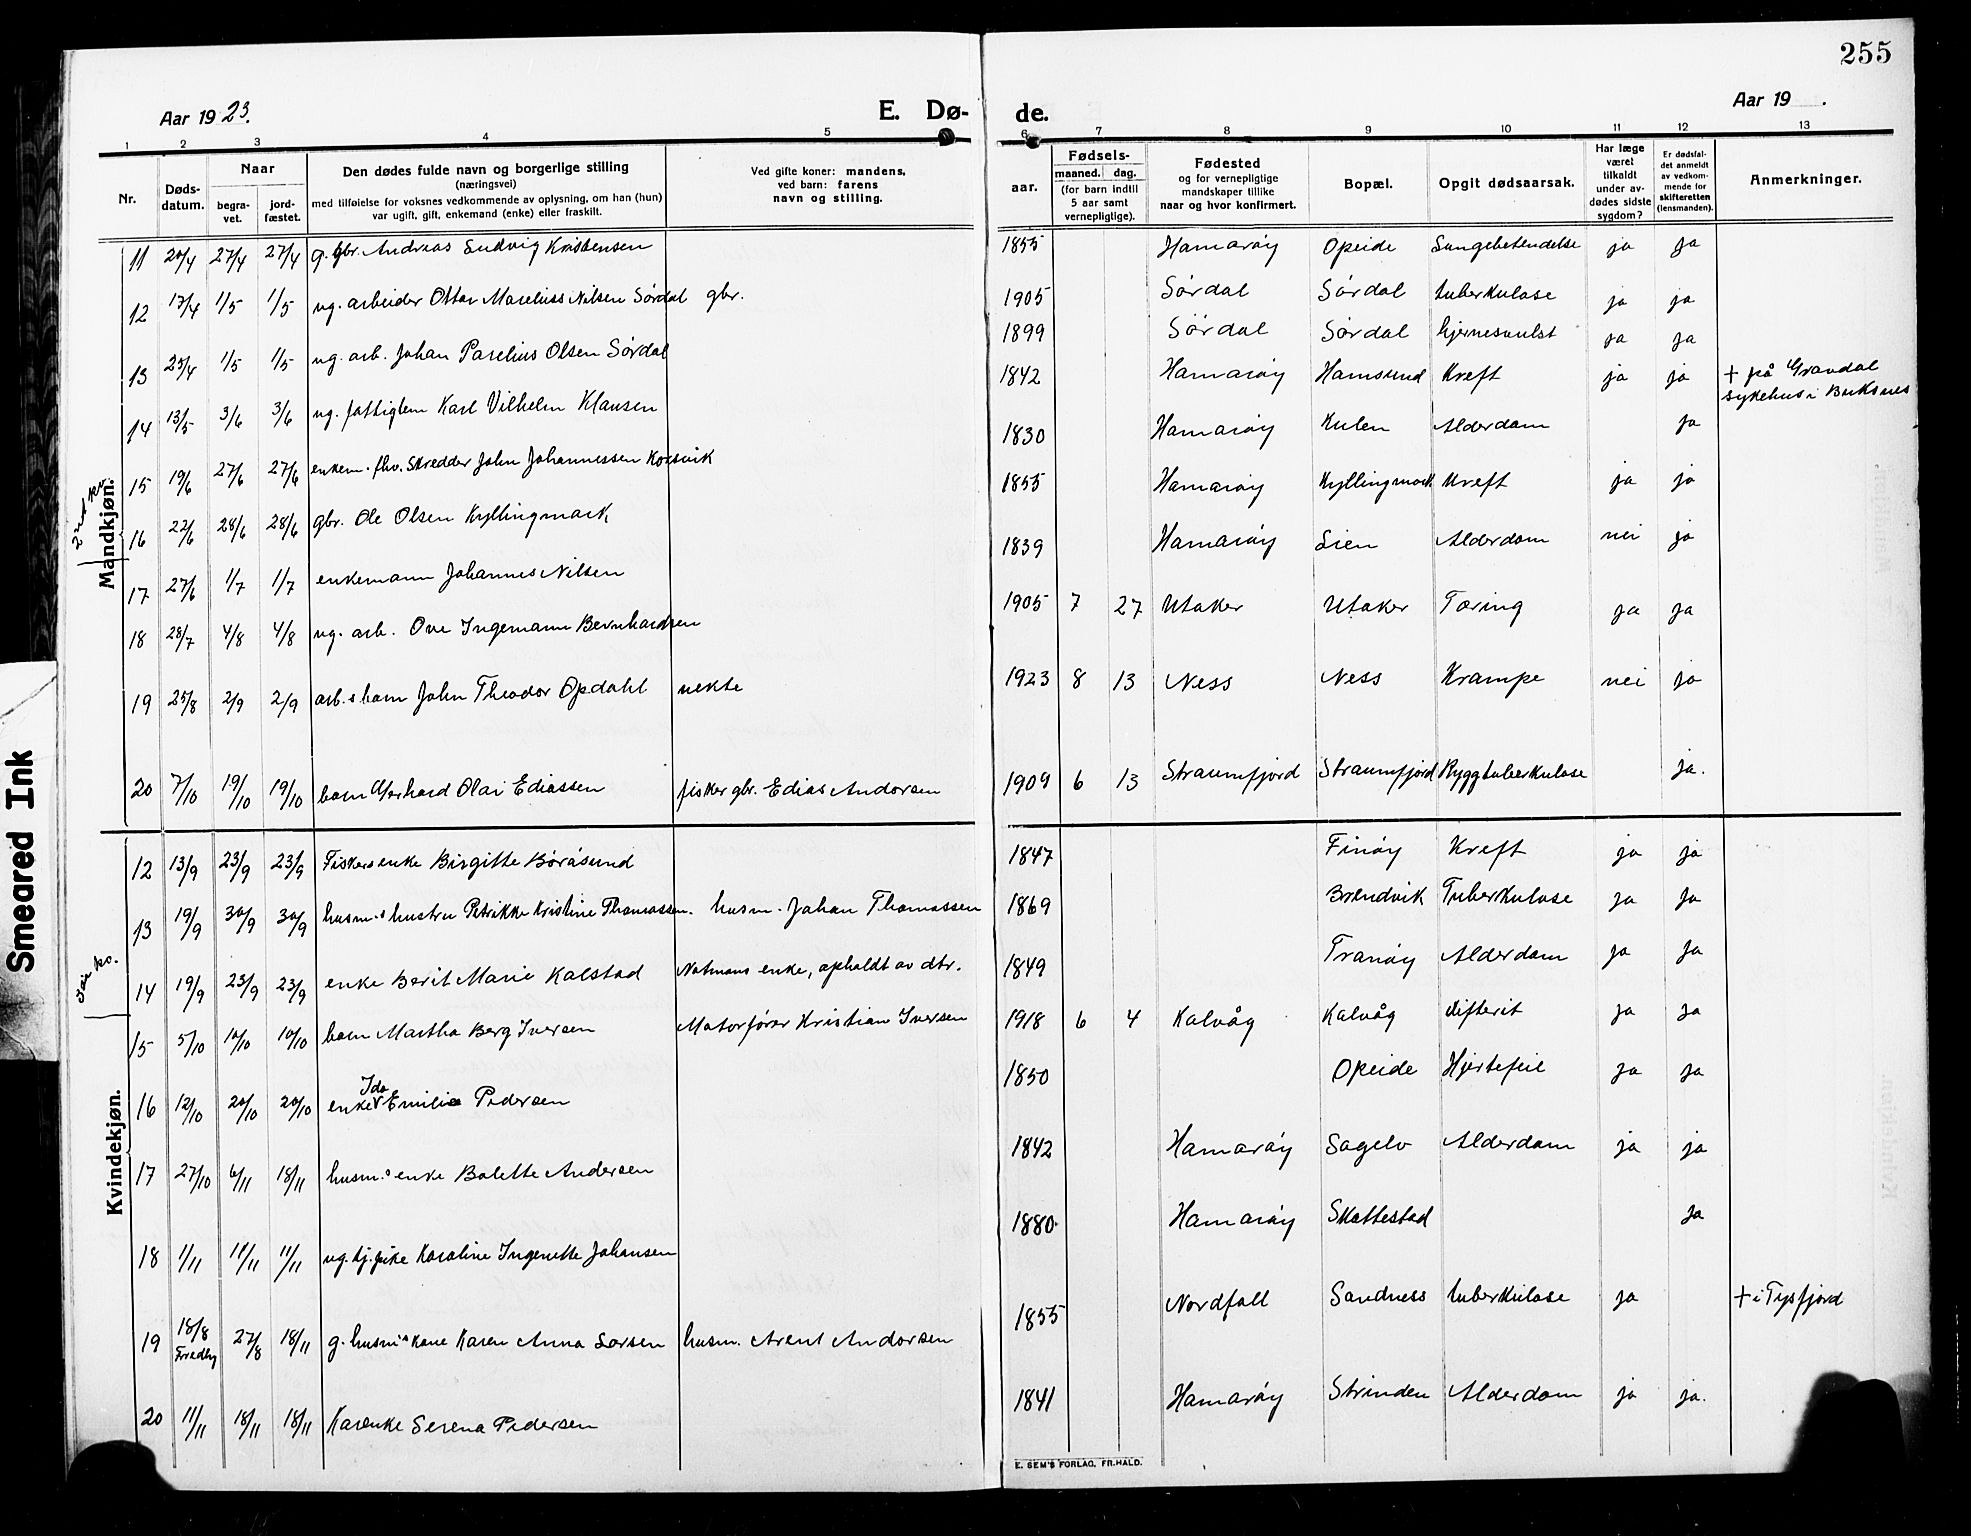 255
Aar 1923.
E. Dø-
de.
Aar 19 .
1 2 3 4 5 6 7 8 9 10 11 12 13
Nr.
Døds-
datum.
Naar
begra-
vet.
jord-
fæstet.
Den dødes fulde navn og borgerlige stilling
(næringsvei)
med tilføielse for voksnes vedkommende av oplysning, om han (hun)
var ugift, gift, enkemand (enke) eller fraskilt.
Ved gifte koner: mandens,
ved barn: farens
navn og stilling.
aar.
Fødsels-
maaned. dag.
(for barn indtil
5 aar samt
vernepligtige).
Fødested
og for vernepligtige
mandskaper tillike
naar og hvor konfirmert.
Bopæl.
Opgit dødsaarsak.
Har læge
været
tilkaldt
under av-
dødes sidste
sygdom?
Er dødsfal-
det anmeldt
av vedkom-
mende for
skifteretten
(lensmanden).
Anmerkninger.
Mandkjøn.
11 20/4 27/4 27/4 g. gbr. Andreas Ludvig Kristensen 1855 Hamarøy Opeide Lungebetendelse ja ja
12 17/4 1/5 1/5 ug. arbeider Ottar Marelius Nilsen Sørdal gbr. 1905 Sørdal Sørdal tuberkulose ja ja
13 25/4 1/5 1/5 ug. arb. Johan Parelius Olsen Sørdal 1899 Sørdal Sørdal hjernesvulst ja ja
14 13/5 3/6 3/6 ug. fattiglem Karl Vilhelm Klausen 1842 Hamarøy Hamsund Kreft ja ja + på Gravdal
sykehus i Buksnes
15 19/6 27/6 27/6 enkem. fhv. Skredder John Johannessen Korsvik 1830 Hamarøy Kulen Alderdom ja
16 22/6 28/6 28/6 gbr. Ole Olsen Kyllingmark 1855 Hamarøy Kyllingmark Kreft ja ja
17 27/6 1/7 1/7 enkemann Johannes Nilsen 1839 Hamarøy Lien Alderdom nei ja
18 28/7 4/8 4/8 ug. arb. Ove Ingemann Bernhardsen 1905 7 27 Utaker Utaker Tæring ja ja
19 25/8 2/9 2/9 arb.s barn John Theodor Opdahl uekte 1923 8 13 Ness Ness Krampe nei ja
20 7/10 19/10 19/10 barn Gerhard Olai Ediassen fisker gbr. Edias Andersen 1909 6 13 Straumfjord Straumfjord Ryggtuberkulose ja.
Kvindekjøn.
12 13/9 23/9 23/9 Fiskers enke Birgitte Børøsund 1847 Finøy Kreft ja ja
13 19/9 30/9 30/9 husm.s hustru Petrikke Kristine Thomassen. husm. Johan Thomassen 1869 Brendvik Tuberkulose ja ja
14 19/9 23/9 23/9 enke Berit Marie Kalstad Notmans enke, opholdt av dtr. 1849 Tranøy Alderdom ja ja
15 5/10 10/10 10/10 barn Martha Berg Iversen Motorfører Kristian Iversen 1918 6 4 Kalvåg Kalvåg difterit ja ja
16 12/10 20/10 20/10 enke Ida Emilie Pedersen 1850 Opeide Hjertefeil ja ja
17 27/10 6/11 18/11 husm.s enke Bolette Andersen 1842 Hamarøy Sagelv Alderdom ja ja
18 1/11 11/11 11/11 ug. tj.pike Karoline Ingenette Johansen 1880 Hamarøy Skottestad ja
19 18/8 27/8 18/11 g. husm.s kone Karen Anna Larsen husm. Arent Andersen 1855 Nordfall Sandness tuberkulose ja + i Tysfjord
20 11/11 18/11 18/11 Kårenke Serena Pedersen 1841 Hamarøy Strinden Alderdom ja ja.
E. SEM'S FORLAG, FR.HALD.
Smeared Ink